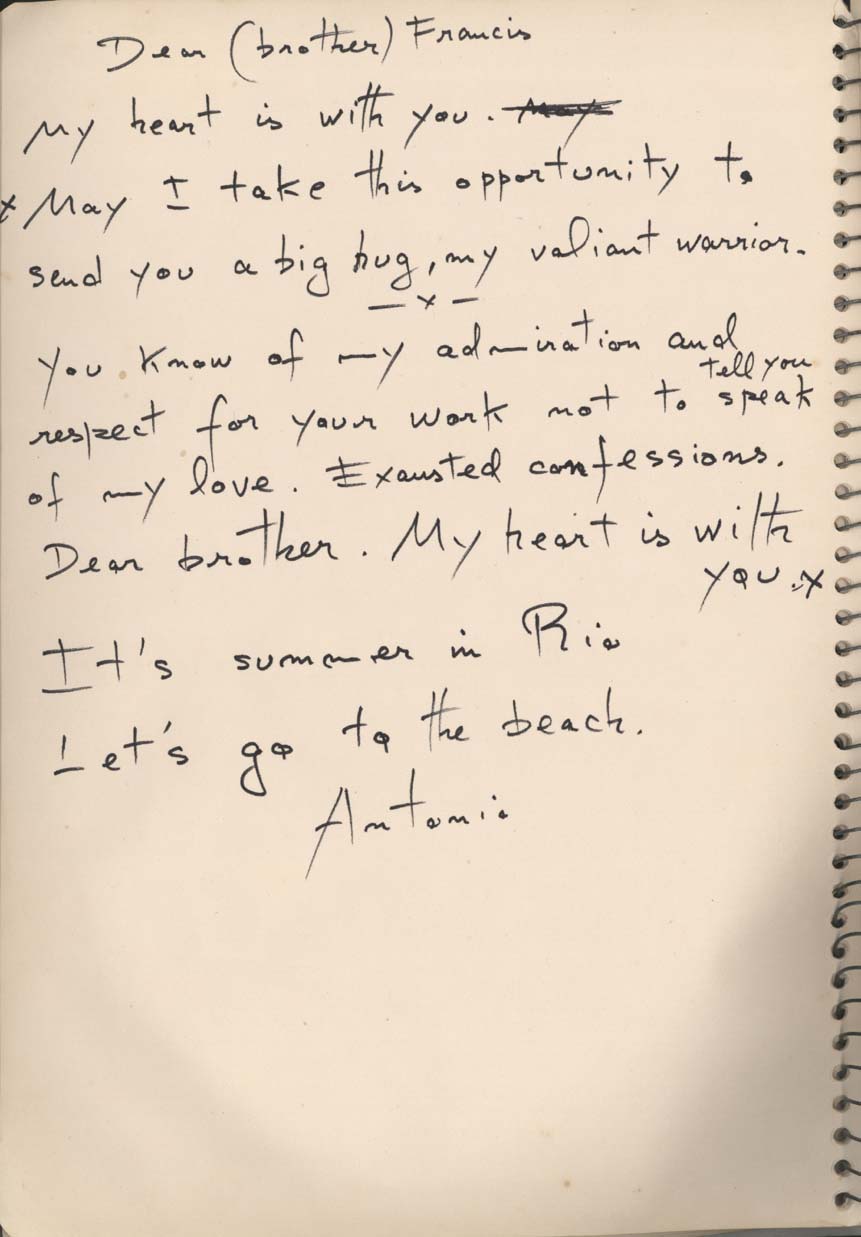 Dear (brother) Francis
My heart is with you. May
x May I take this opportunity to
send you a big hug, my valiant warrior.
— x —
You know of my admiration and
tell you
respect for your work not to speak
of my love. Exausted confessions.
Dear brother. My heart is with
you. x
It's summer in Rio
Let's go to the beach.
Antonio